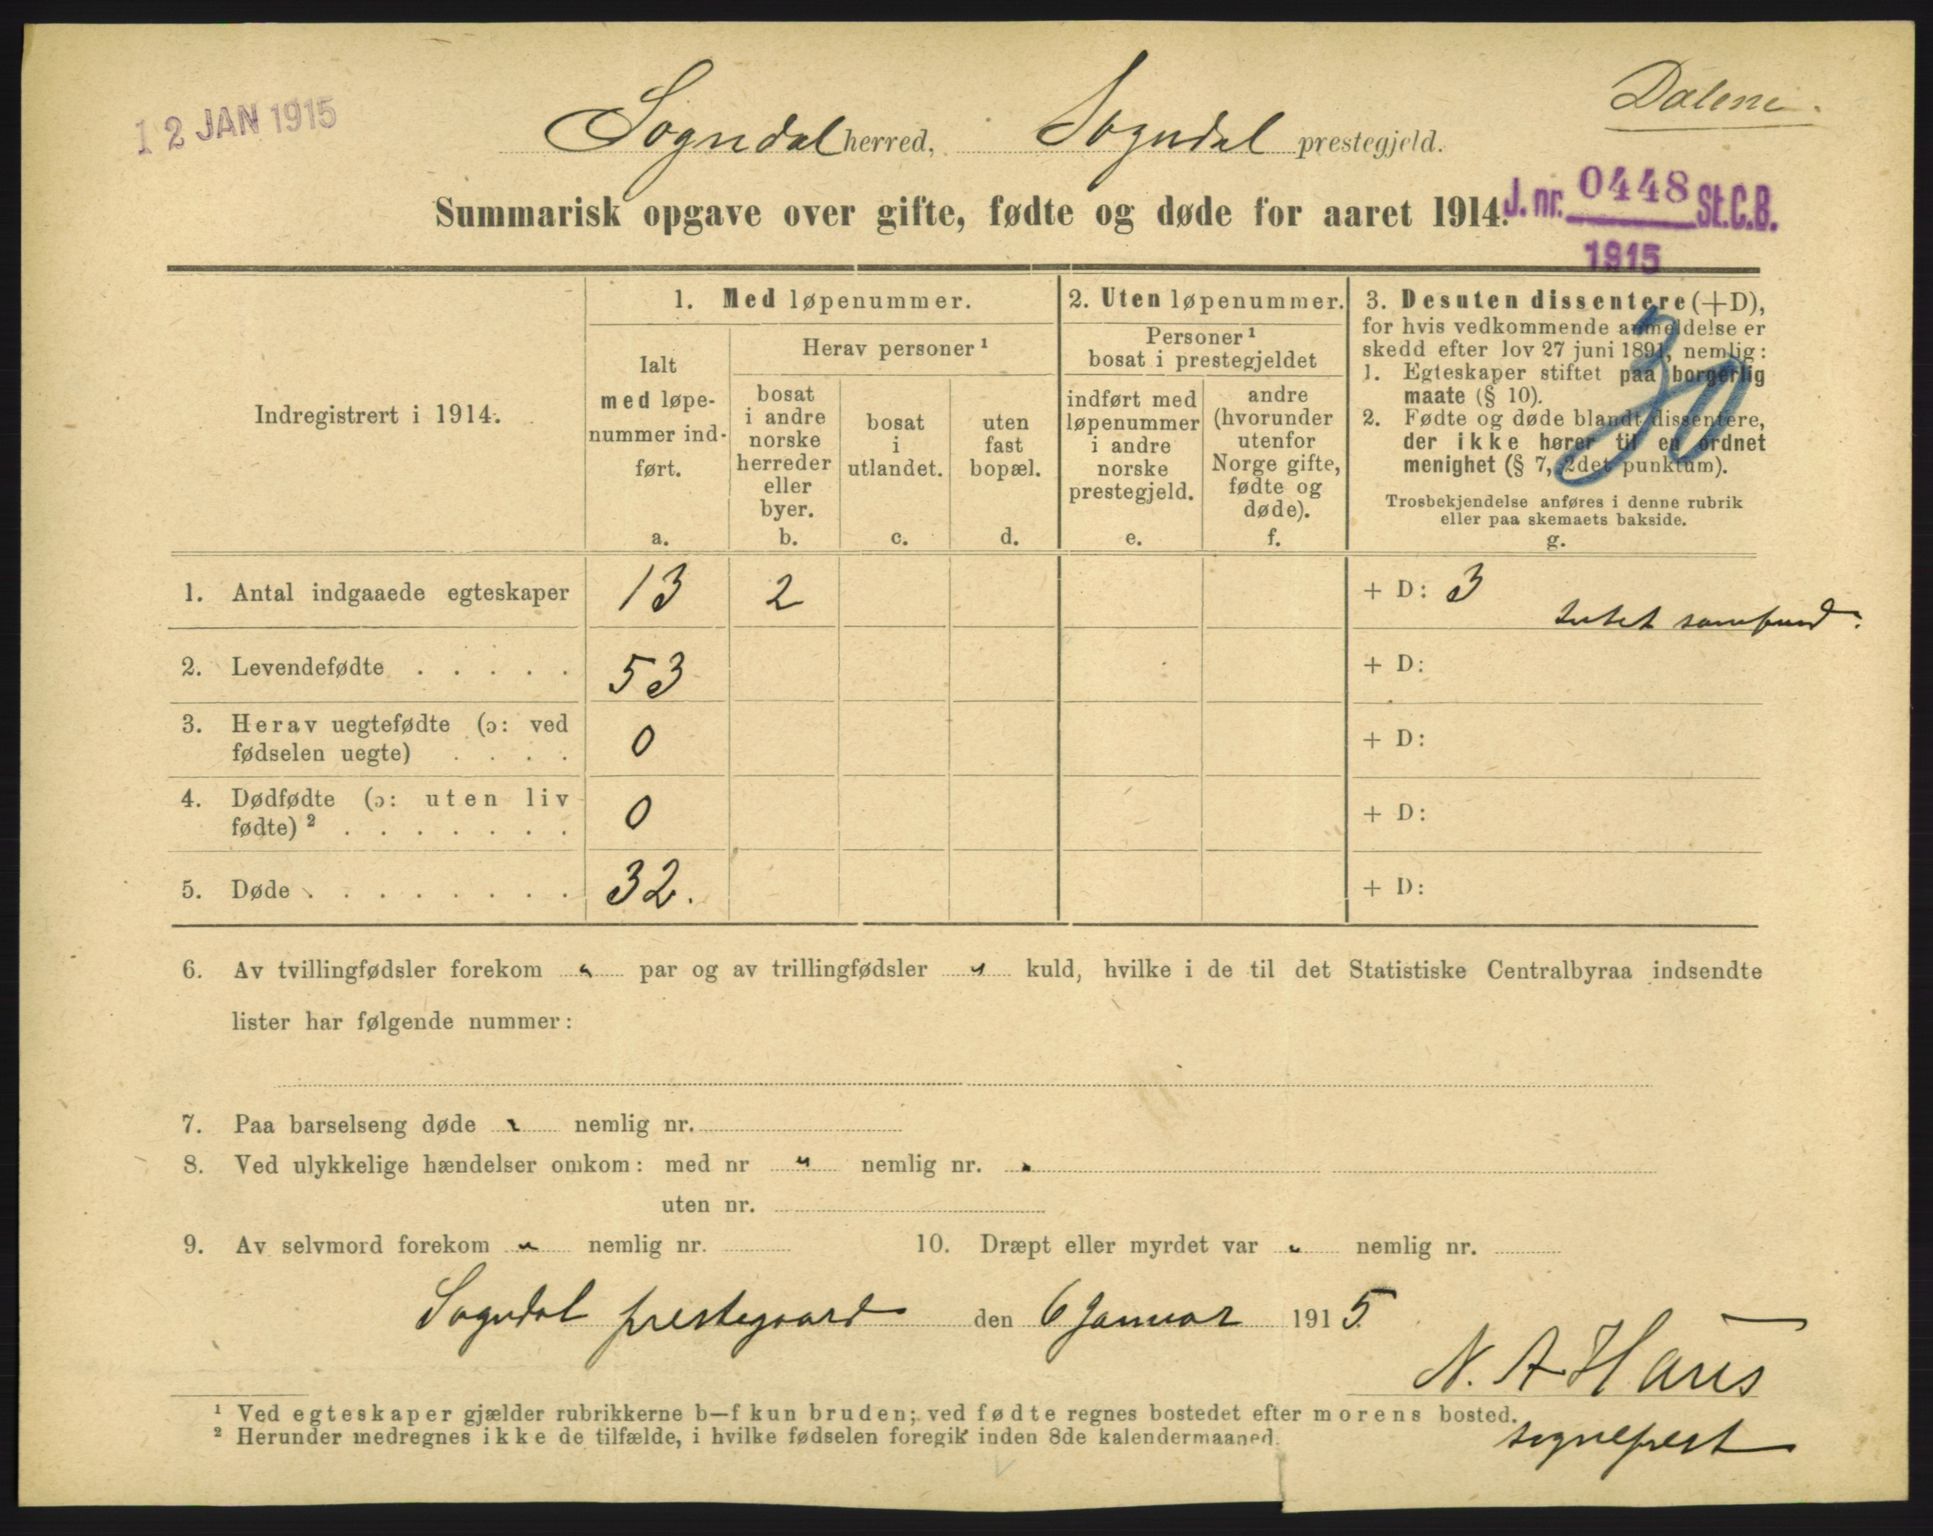 12 JAN 1915
Dalene.
Sogndal herred, Sogndal prestegjeld.
Summarisk opgave over gifte, fødte og døde for aaret 1914.
J. nr. 0448 St. C. B.
1915
30
Indregistrert i 1914.
1. Med løpenummer.
Ialt
med løpe-
nummer ind-
ført.
a.
Herav personer ¹
bosat
i andre
norske
herreder
eller
byer.
b.
bosat
i
utlandet.
c.
uten
fast
bopæl.
d.
2. Uten løpenummer.
Personer ¹
bosat i prestegjeldet
indført med
løpenummer
i andre
norske
prestegjeld.
e.
andre
(hvorunder
utenfor
Norge gifte,
fødte og
døde).
f.
3. Desuten dissentere (+D),
for hvis vedkommende anmeldelse er
skedd efter lov 27 juni 1891, nemlig:
1. Egteskaper stiftet paa borgerlig
maate (§ 10).
2. Fødte og døde blandt dissentere,
der ikke hører til en ordnet
menighet (§ 7, 2det punktum).
Trosbekjendelse anføres i denne rubrik
eller paa skemaets bakside.
g.
1. Antal indgaaede egteskaper 13 2 + D: 3
intet samfund.
2. Levendefødte . . . . . 53 + D:
3. Herav uegtefødte (ɔ: ved
fødselen uegte) . . . . 0 + D:
4. Dødfødte (ɔ: uten liv
fødte) ² . . . . . . . 0 + D:
5. Døde . . . . . . . . 32. + D:
6. Av tvillingfødsler forekom " par og av trillingfødsler " kuld, hvilke i de til det Statistiske Centralbyraa indsendte
lister har følgende nummer:
7. Paa barselseng døde " nemlig nr.
8. Ved ulykkelige hændelser omkom: med nr " nemlig nr. "
uten nr.
9. Av selvmord forekom " nemlig nr. 10. Dræpt eller myrdet var " nemlig nr.
Sogndal prestegaard den 6 Januar 1915.
N. A Hans
sogneprest
¹ Ved egteskaper gjælder rubrikkerne b—f kun bruden; ved fødte regnes bostedet efter morens bosted.
² Herunder medregnes ikke de tilfælde, i hvilke fødselen foregik inden 8de kalendermaaned.